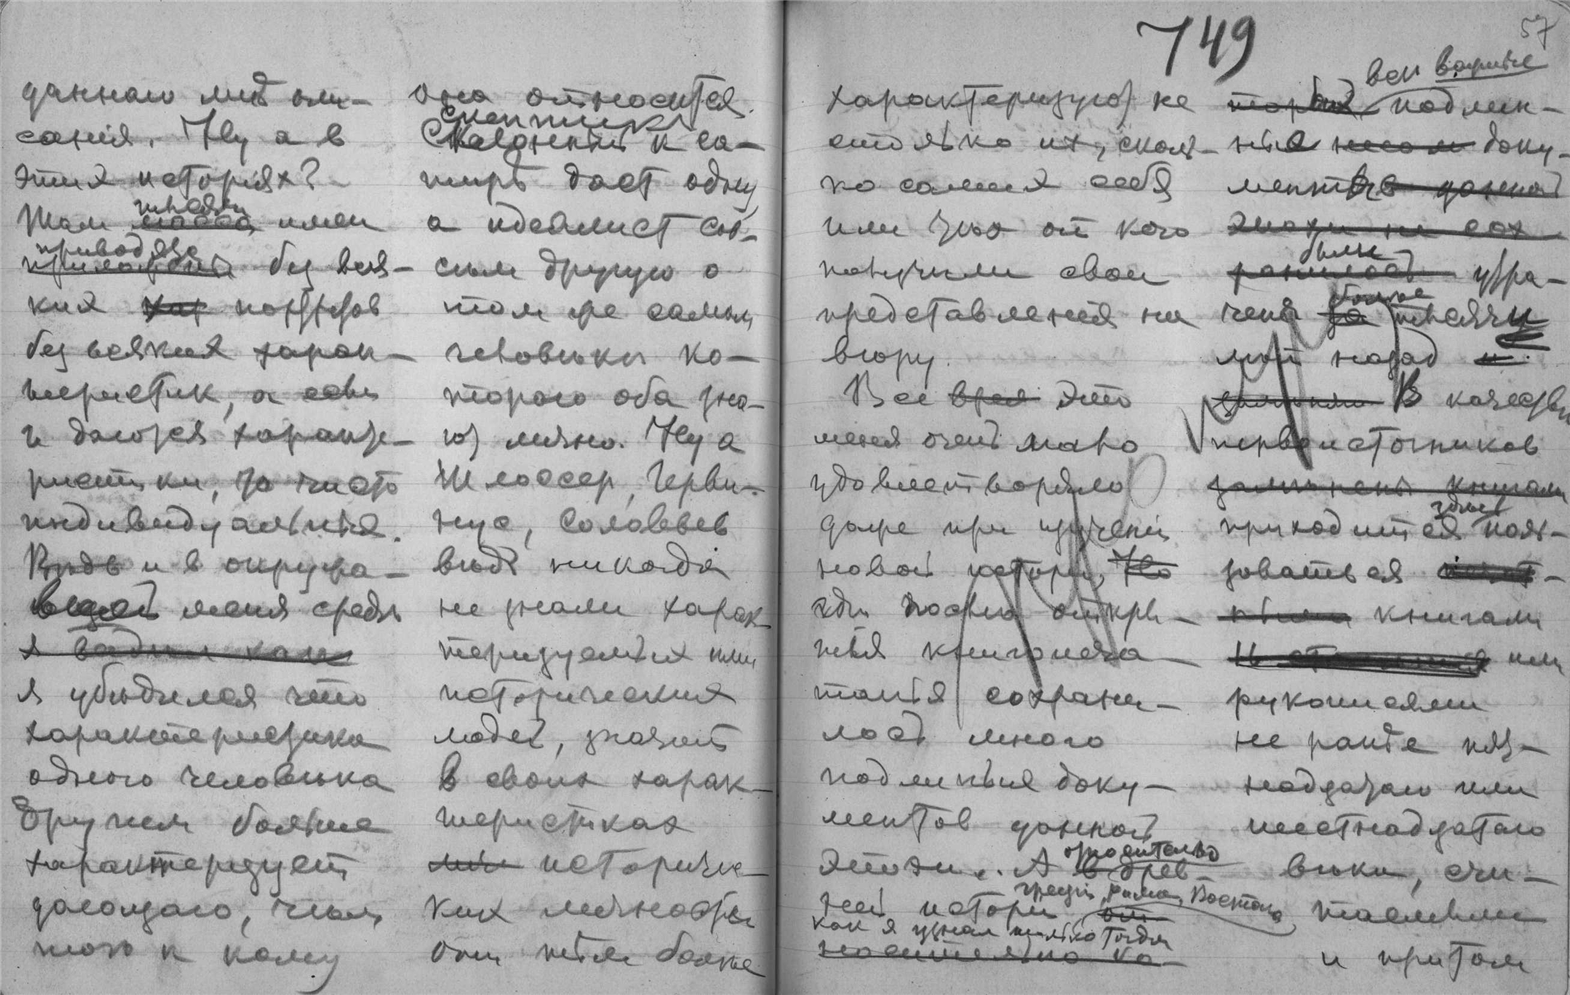 749
57
даннаго мѣстопи-
санія. Ну а в
этих историях?
Там тысячи имен
приводятся без вся-
ких портретов
без всяких харак-
теристик, а если
и даются характе-
ристики, то чисто
индивидуальныя.
Вѣдь и в окружа-
вшей меня средѣ
я
я убѣдился что
характеристика
одного человѣка
другим больше
характеризует
дающаго, чѣм
того к кому
она относится.
Скептик
Склонный к са-
тирѣ даст одну,
а идеалист сов-
сѣм другую о
том же самом
человѣкѣ ко-
тораго оба зна-
ют лично. Ну а
Шлоссер, Герви-
нус, Соловьев
вѣдь никогда
не знали харак-
теризуемых ими
исторических
людей, значит
в своих харак-
теристиках
историче-
ких личностей
они тѣм болѣе
характеризуют не
столько их, сколь-
ко самих себя
или тѣх от кого
получили свои
представления на
вѣру.
Все время это
меня очень мало
удовлетворяло
даже при изучении
новой истории, Но
гдѣ послѣ откры-
тия книгопеча-
тания сохрани-
лось много
подлинных доку-
ментов данной
эпохи.. А относительно
в древ-
ней истории Греции, Рима, Востока
как я узнал только тогда
носительно ка-
всѣ вообще
подлин-
ные доку-
менты данной
эпохи не сох-
ранилось были утра-
чены болѣе тысячи
лѣт назад и
В качествѣ
первоисточников
заполнены книгами
приходится здѣсь поль-
зоваться
книгами
или
рукописями
не ранѣе пят-
надцатаго или
шестнадцатаго
вѣка, счи-
таемыми
и притом